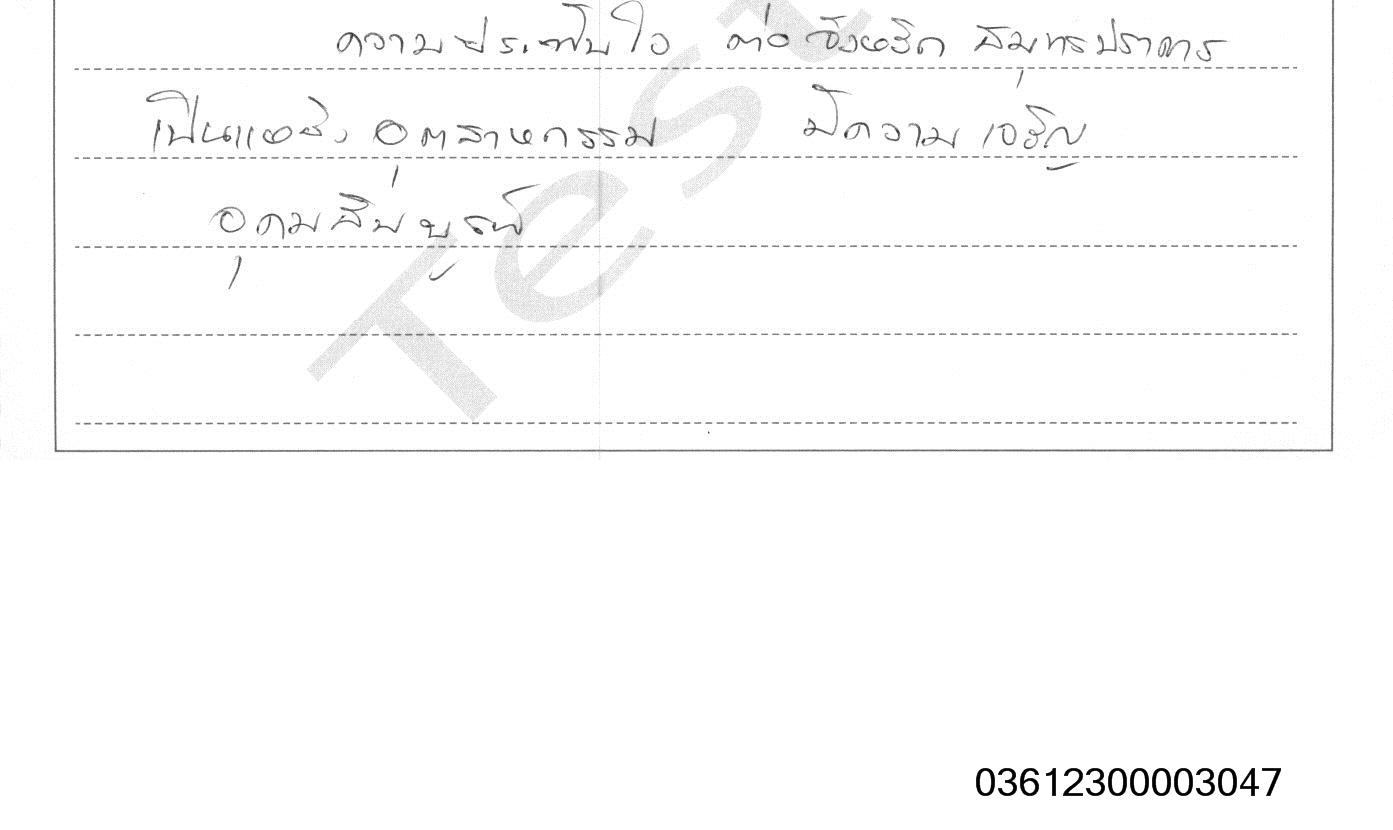 ความประทับใจ ต่อจังหวัด สมุทรปราการ
เป็นแหล่ง อุตสาหกรรม มีความเจริญ
อุดมสมบูรณ์
Test
03612300003047